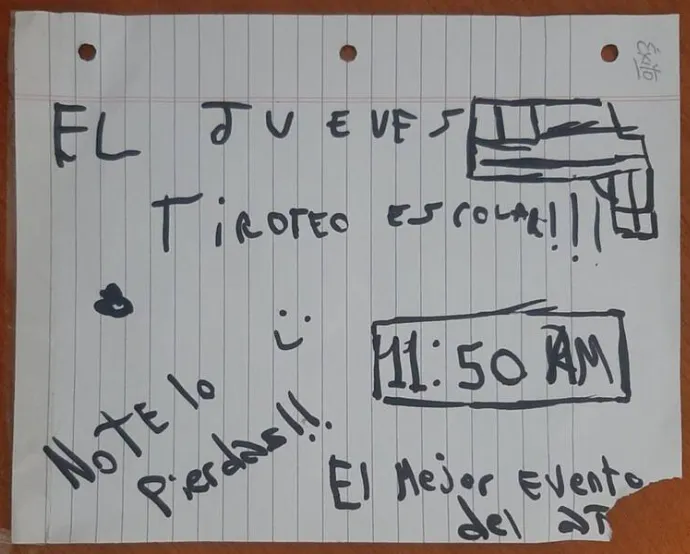 Éxito
EL JUEVES
TiROTEO ESCOLAR!!!
:)
11:50 AM
NOTE lo
pierdas!!!
El Mejor Evento
del